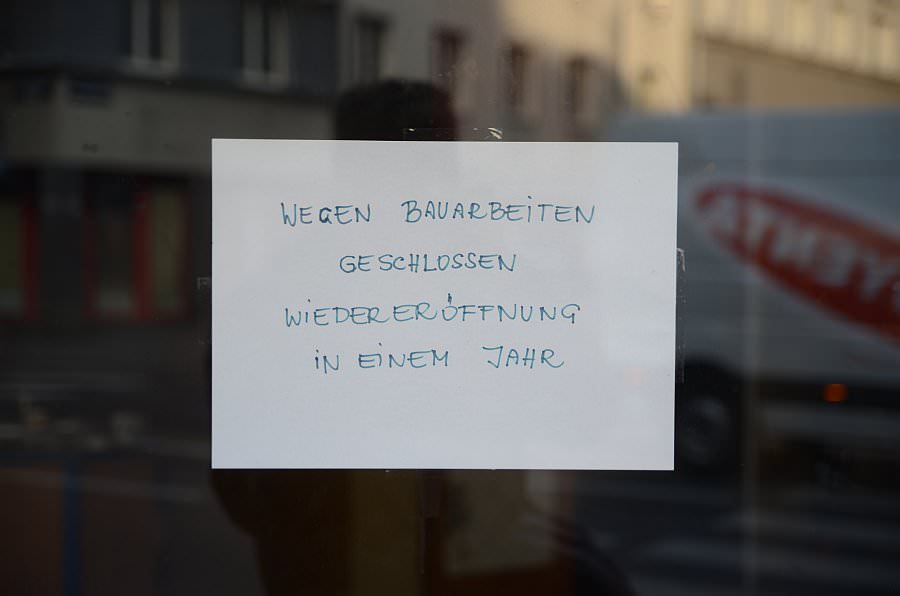 WEGEN BAUARBEITEN
GESCHLOSSEN
WIEDERERÖFFNUNG
IN EINEM JAHR